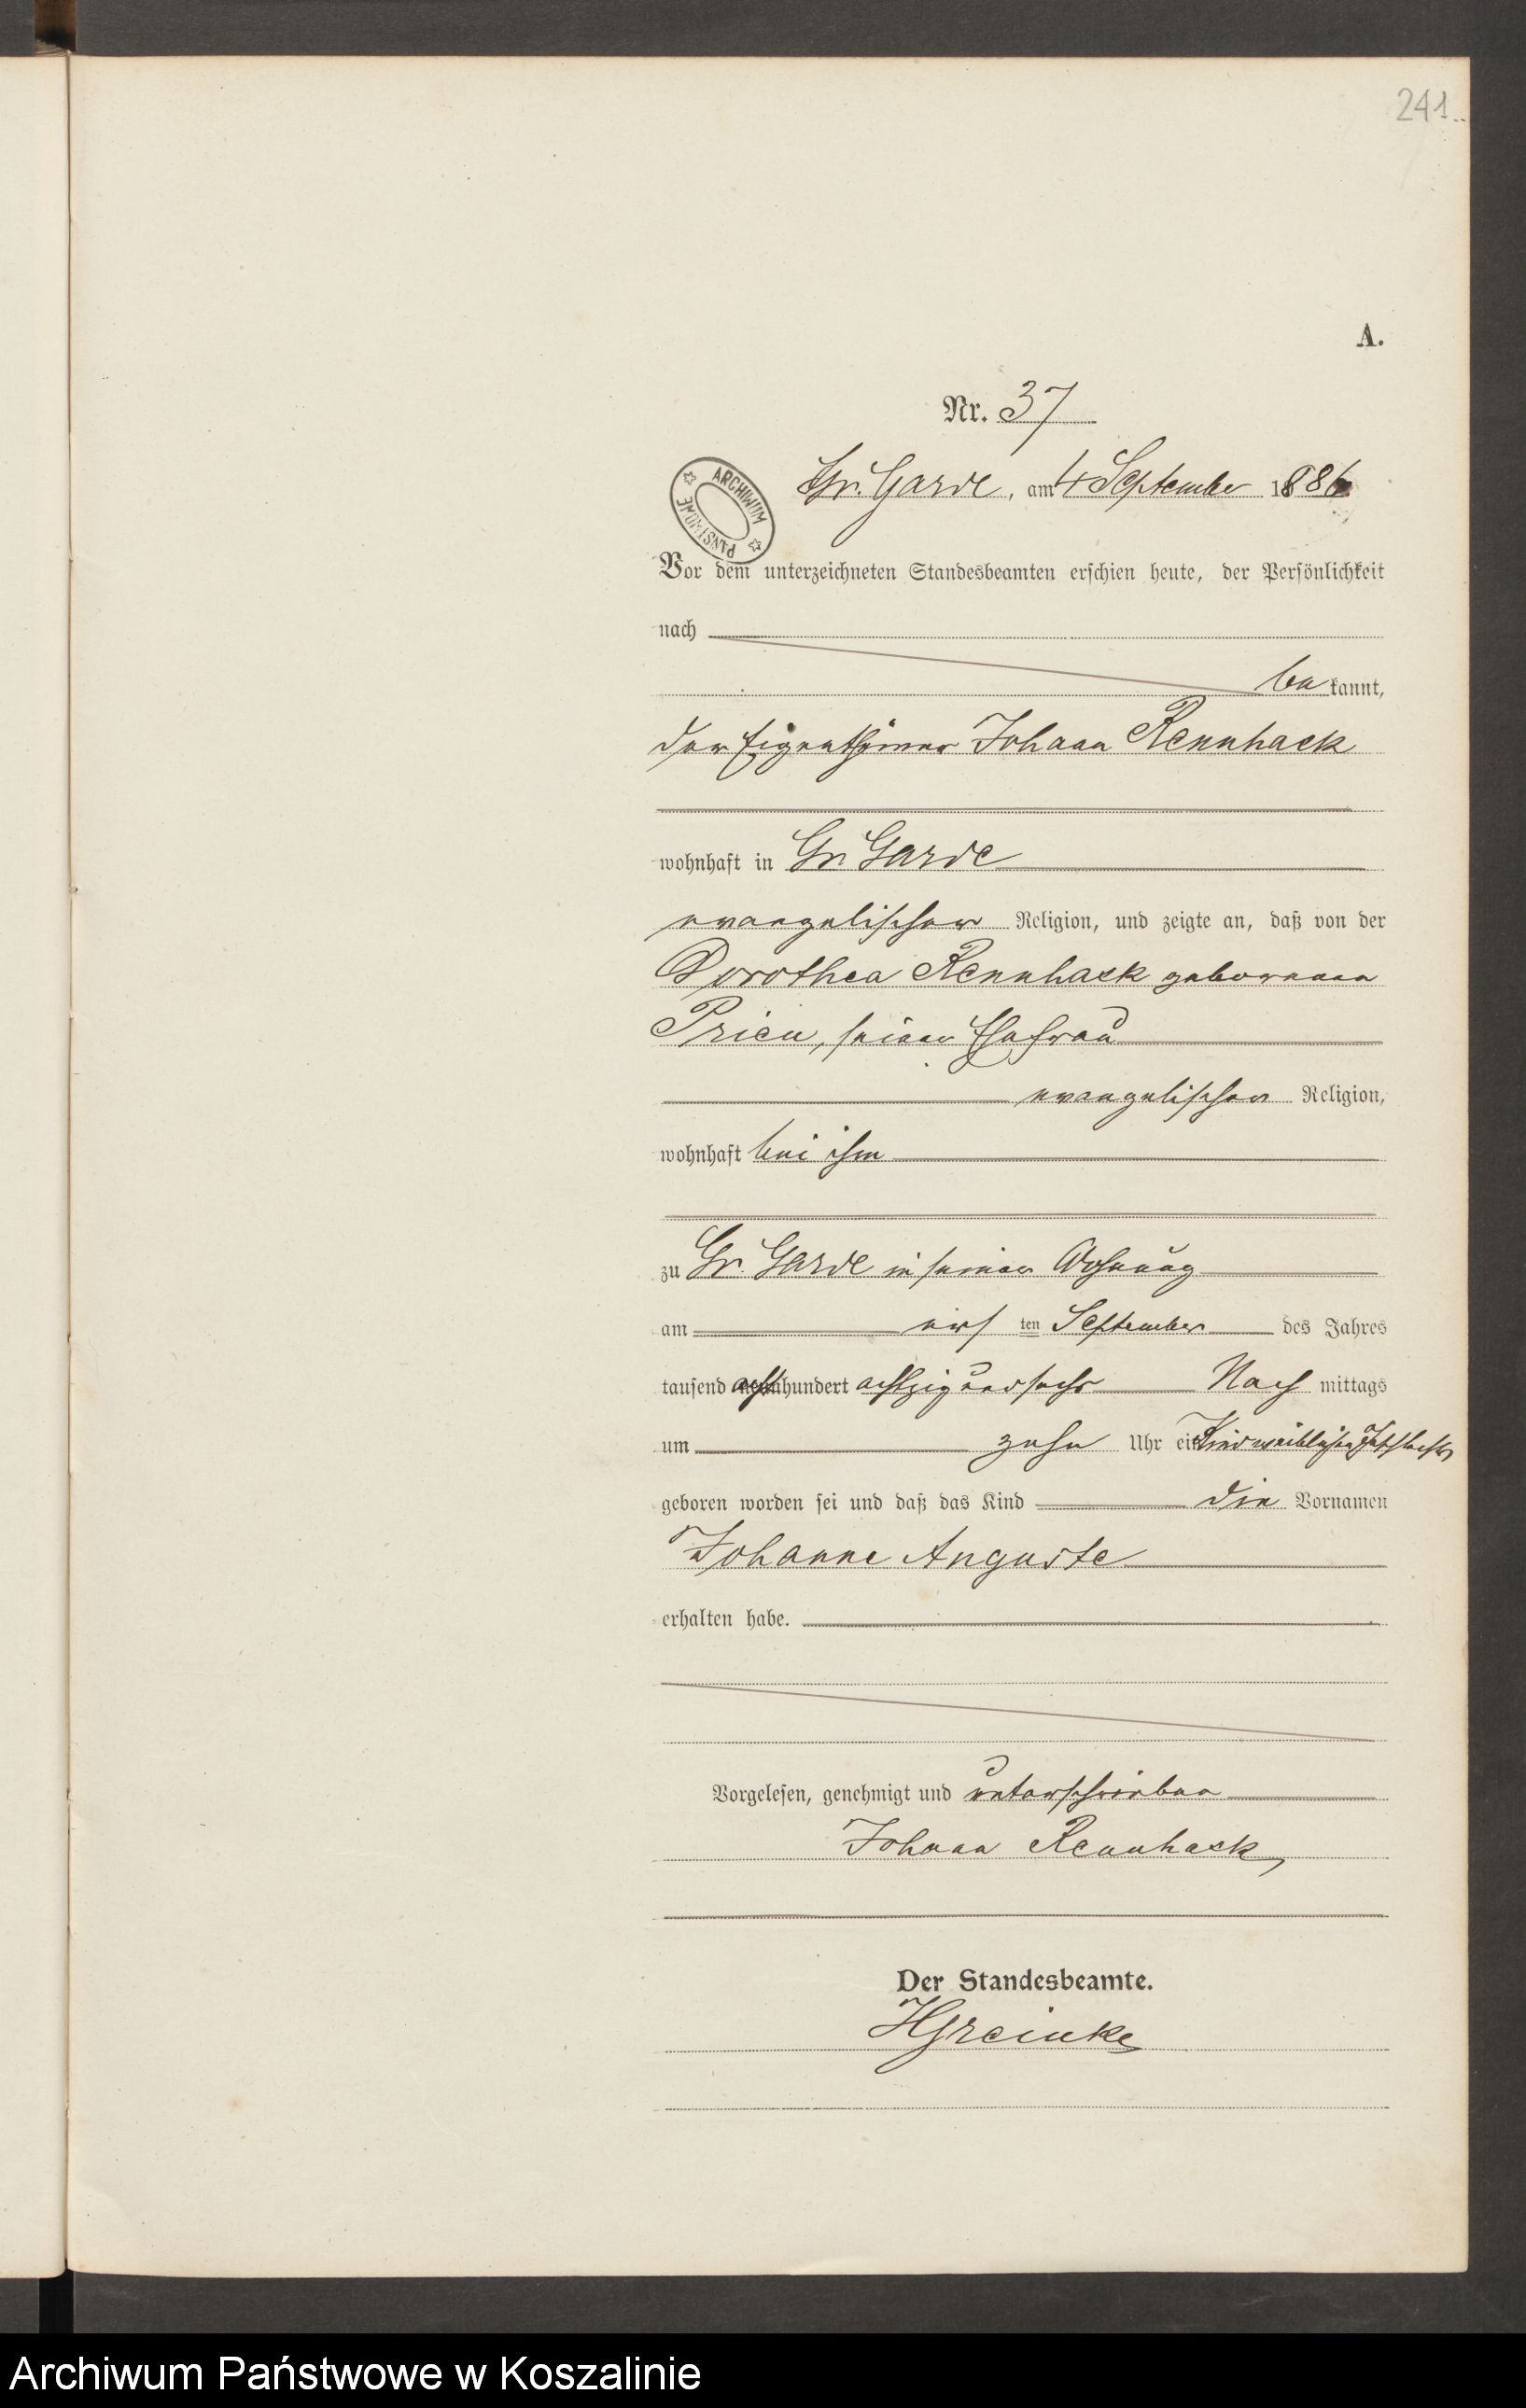 241
A.
Nr. 37
ARCHIWUM PAŃSTWOWE
Gr. Garde, am 4 September 1886
Vor dem unterzeichneten Standesbeamten erschien heute, der Persönlichkeit
nach
bekannt,
der Eigenthümer Johann Rennhack
wohnhaft in Gr. Garde
evangelischer Religion, und zeigte an, daß von der
Dorothea Rennhack geborenen
Prien, seiner Ehefrau
evangelischer Religion,
wohnhaft bei ihm
zu Gr. Garde in seiner Wohnung
am ersten September des Jahres
tausend achthundert achtzig und sechs Nachmittags
um zehn Uhr ein Kind weiblichen Geschlechts
geboren worden sei und daß das Kind die Vornamen
Johanne Auguste
erhalten habe.
Vorgelesen, genehmigt und unterschrieben
Johann Rennhack
Der Standesbeamte.
Greinke
Archiwum Państwowe w Koszalinie